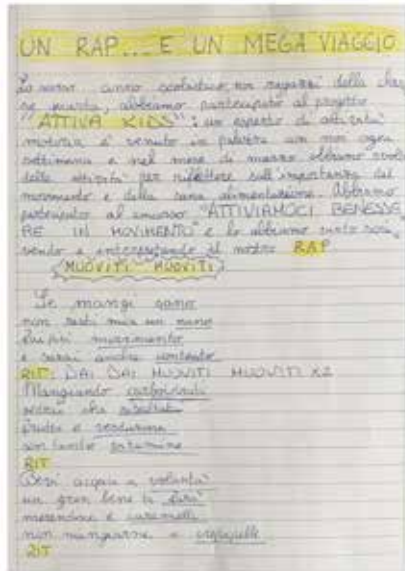 UN RAP... E UN MEGA VIAGGIO
Lo scorso anno scolastico, noi ragazzi della clas-
se quarta, abbiamo partecipato al progetto
"ATTIVA KIDS": un esperto di attività
motoria è venuto in palestra con noi ogni
settimana e nel mese di marzo abbiamo svolto
delle attività per riflettere sull'importanza del
movimento e della sana alimentazione. Abbiamo
partecipato al concorso "ATTIVIAMOCI BENESSE
RE IN MOVIMENTO" e lo abbiamo vinto scri
vendo e interpretando il nostro RAP
"MUOVITI MUOVITI"
Se mangi sano
non resti mai un nano
Fai più movimento
e sarai anche contento
RIT: DAI DAI MUOVITI MUOVITI X2
Mangiando carboidrati
vedrai che risultati
frutta e verdurine
son tante vitamine
RIT
Bevi acqua a volontà
un gran bene ti farà
merendine e caramelle
non mangiarne a crepapelle
RIT